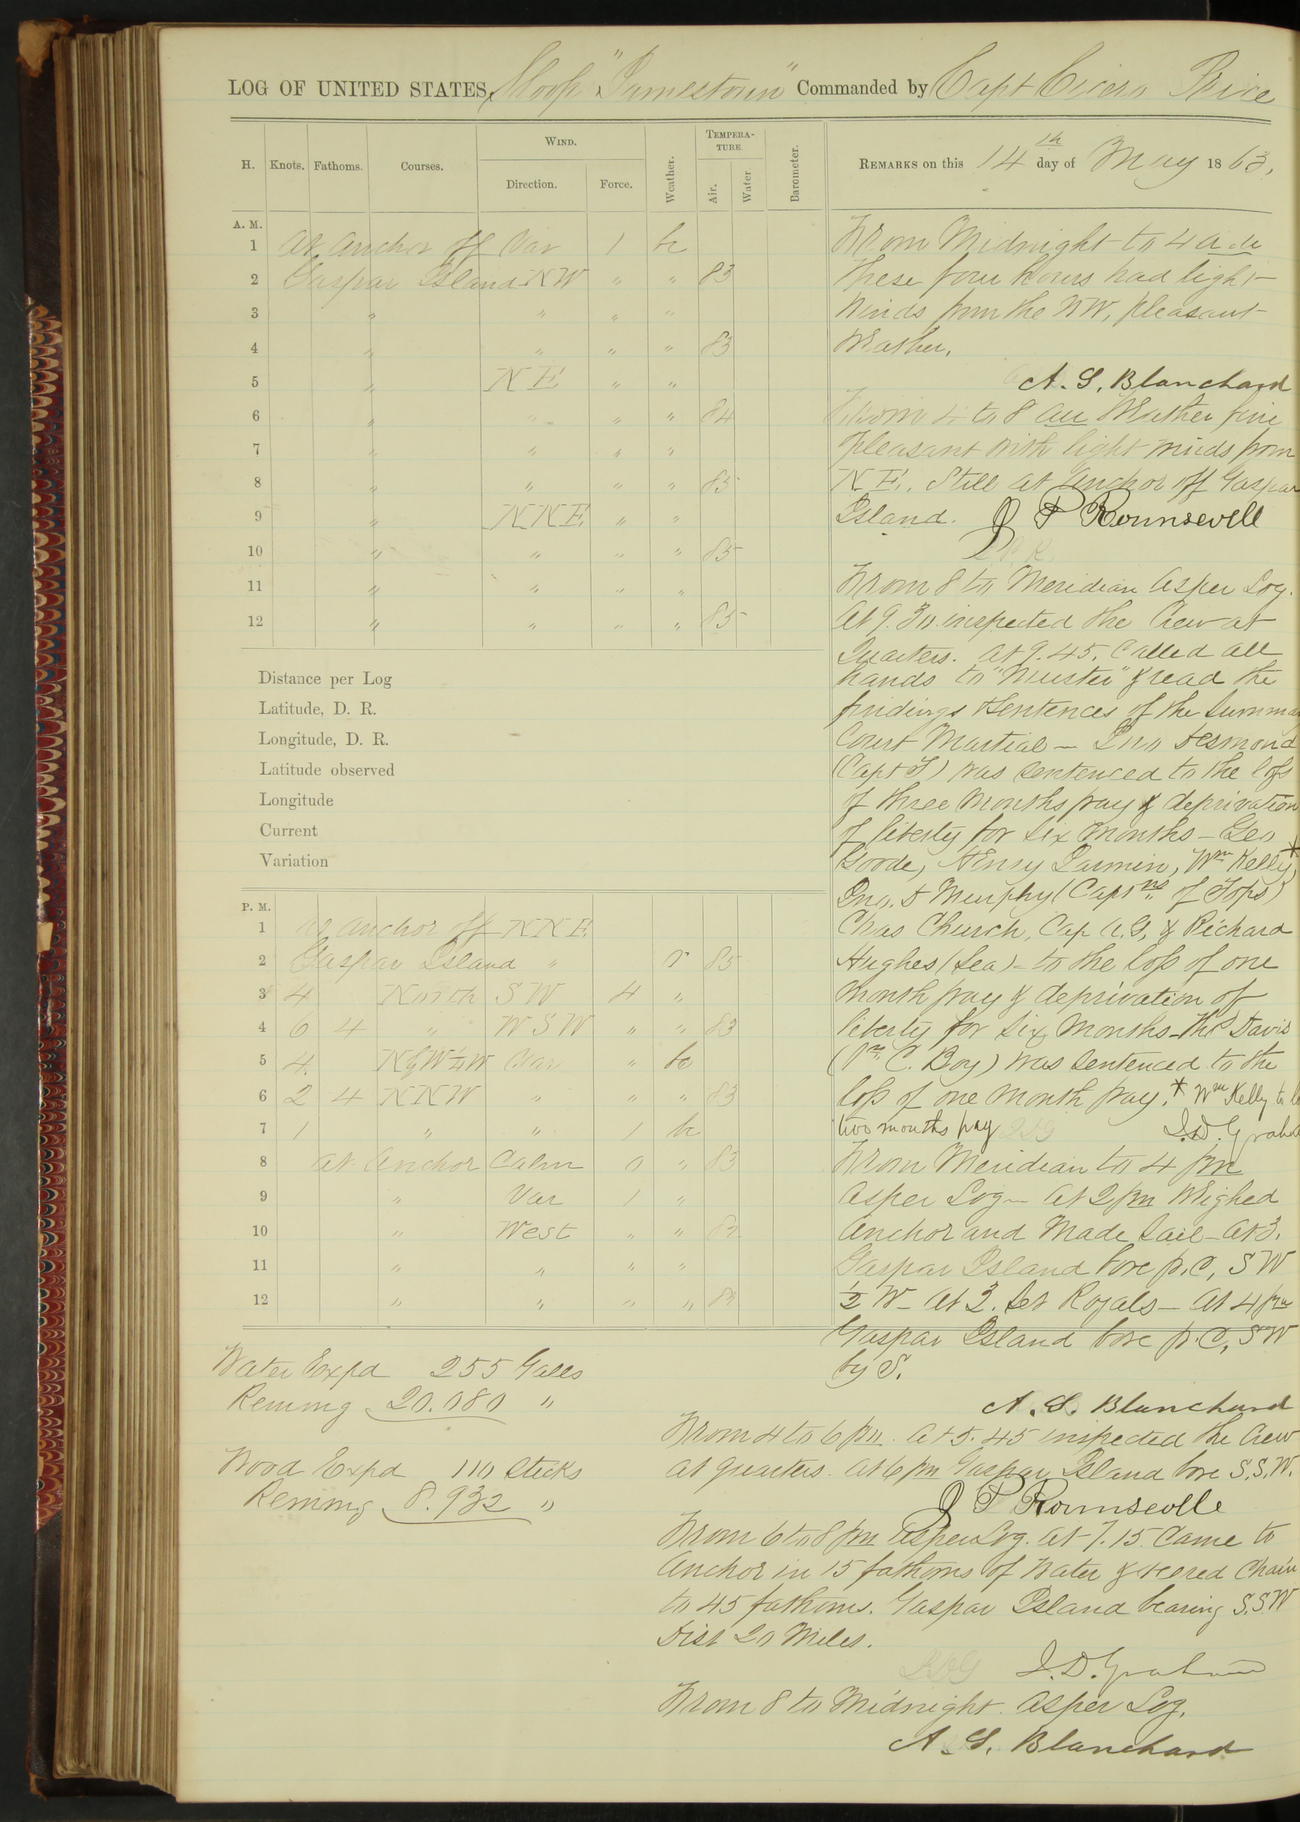 LOG OF UNITED STATES Sloop "Jamestown" Commanded by Capt Cicero Price
H. Knots. Fathoms. Courses. WIND. Direction. Force. Weather. TEMPERATURE. Air. Water Barometer.
REMARKS on this 14th day of May 1863.
A. M.
1 At Anchor off Var 1 bc
2 Gaspar Island NW " " 83
3 " " " "
4 " " " " 83
5 " NE " "
6 " " " " 84
7 " " " "
8 " " " " 85
9 " NNE " "
10 " " " " 85
11 " " " "
12 " " " " 85
Distance per Log
Latitude, D. R.
Longitude, D. R.
Latitude observed
Longitude
Current
Variation
P. M.
1 At Anchor off NNE
2 Gaspar Island " r 85
3 4 North SW 4 "
4 6 4 " WSW " " 83
5 4. NbW¼W Var " bc
6 2 4 NNW " " " 83
7 1 " " 1 bc
8 at Anchor Calm 0 " 83
9 " Var 1 "
10 " West " " 82
11 " " " "
12 " " " " 82
Water Expd 255 Galls
Remng 20.080 "
Wood Expd 110 Sticks
Remng 8.932 "
From Midnight to 4 am
These four hours had light
Winds from the NW, pleasant
Weather.
A. S. Blanchard
From 4 to 8 am Weather fine
pleasant with light winds from
NE. Still at Anchor off Gaspar
Island. J P Rounsevell
From 8 to Meridian as per Log.
At 9.30 inspected the Crew at
Quarters. at 9.45. Called all
hands to "Muster" & read the
findings & sentences of the Summa
Court Martial — Jno Desmond
(Capt F) was sentenced to the loss
of three months pay & deprivation
of liberty for six months — Geo
Goode, Henry Larmin, Wm Kelly*,
Jno. D Murphy (Captns of Tops)
Chas Church, Cap A.G, & Richard
Hughes (Sea) - to the loss of one
month pay & deprivation of
liberty for six months - Thos Davis
(1st C. Boy) was sentenced to the
loss of one month pay. * Wm Kelly to
two months pay J.D. Graham
From Meridian to 4 pm
as per Log — At 2 pm Weighed
Anchor and Made Sail - at 3.
Gaspar Island bore p.C. SW
½ W - at 3. Set Royals — At 4 pm
Gaspar Island bore p.C. SW
by S.
A. S. Blanchard
From 4 to 6 pm. At 5.45 inspected the Crew
at quarters. at 6 pm Gaspar Island bore S.S.W.
J P Rounsevelle
From 6 to 8 pm as per Log. At 7.15 Came to
Anchor in 15 fathoms of Water & veered Chain
to 45 fathoms. Gaspar Island bearing S.SW
Dist 20 Miles.
J.D. Graham
From 8 to Midnight as per Log.
A. S. Blanchard